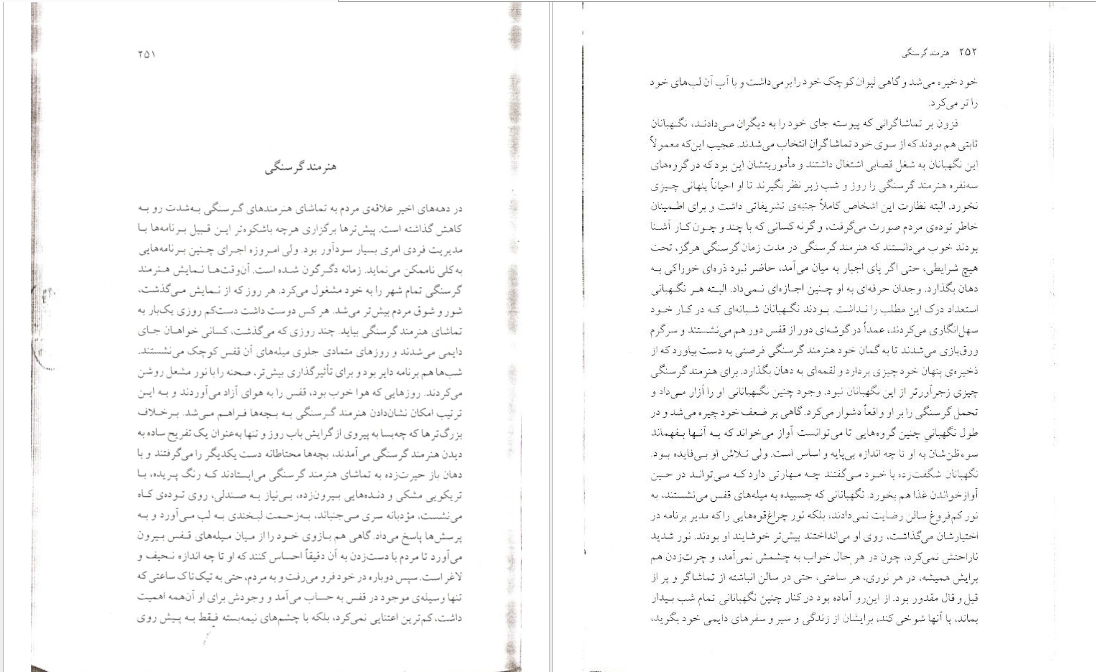 ۲۵۱
هنرمند گرسنگی
در دهه‌های اخیر علاقه‌ی مردم به تماشای هنرمندهای گرسنگی به‌شدت رو به
کاهش گذاشته است. پیش‌ترها برگزاری هرچه باشکوه‌تر این قبیل برنامه‌ها با
مدیریت فردی امری بسیار سودآور بود. ولی امروزه اجرای چنین برنامه‌هایی
به‌کلی ناممکن می‌نماید. زمانه دگرگون شده است. آن‌وقت‌ها نمایش هنرمند
گرسنگی تمام شهر را به خود مشغول می‌کرد. هر روز که از نمایش می‌گذشت،
شور و شوق مردم بیش‌تر می‌شد. هر کس دوست داشت دست‌کم روزی یک‌بار به
تماشای هنرمند گرسنگی بیاید. چند روزی که می‌گذشت، کسانی خواهان جای
دایمی می‌شدند و روزهای متمادی جلوی میله‌های آن قفس کوچک می‌نشستند.
شب‌ها هم برنامه دایر بود و برای تأثیرگذاری بیش‌تر، صحنه را با نور مشعل روشن
می‌کردند. روزهایی که هوا خوب بود، قفس را به هوای آزاد می‌آوردند و به این
ترتیب امکان نشان‌دادن هنرمند گرسنگی به بچه‌ها فراهم می‌شد. برخلاف
بزرگ‌ترها که چه‌بسا به پیروی از گرایش باب روز و تنها به‌عنوان یک تفریح ساده به
دیدن هنرمند گرسنگی می‌آمدند، بچه‌ها محتاطانه دست یکدیگر را می‌گرفتند و با
دهان باز حیرت‌زده به تماشای هنرمند گرسنگی می‌ایستادند که رنگ پریده، با
تریکویی مشکی و دنده‌هایی بیرون‌زده، بی‌نیاز به صندلی، روی توده‌ی کاه
می‌نشست، مؤدبانه سری می‌جنباند، به‌زحمت لبخندی به لب می‌آورد و به
پرسش‌ها پاسخ می‌داد. گاهی هم بازوی خود را از میان میله‌های قفس بیرون
می‌آورد تا مردم با دست‌زدن به آن دقیقاً احساس کنند که او تا چه اندازه نحیف و
لاغر است. سپس دوباره در خود فرو می‌رفت و به مردم، حتی به تیک‌تاک ساعتی که
تنها وسیله‌ی موجود در قفس به حساب می‌آمد و وجودش برای او آن‌همه اهمیت
داشت، کم‌ترین اعتنایی نمی‌کرد، بلکه با چشم‌های نیمه‌بسته فقط به پیش روی
۲۵۲ هنرمند گرسنگی
خود خیره می‌شد و گاهی لیوان کوچک خود را برمی‌داشت و با آب آن لب‌های خود
را تر می‌کرد.
فزون بر تماشاگرانی که پیوسته جای خود را به دیگران می‌دادند، نگهبانان
ثابتی هم بودند که از سوی خود تماشاگران انتخاب می‌شدند. عجیب این‌که معمولاً
این نگهبانان به شغل قصابی اشتغال داشتند و مأموریتشان این بود که در گروه‌های
سه‌نفره هنرمند گرسنگی را روز و شب زیر نظر بگیرند تا او احیاناً پنهانی چیزی
نخورد. البته نظارت این اشخاص کاملاً جنبه‌ی تشریفاتی داشت و برای اطمینان
خاطر توده‌ی مردم صورت می‌گرفت، وگرنه کسانی که با چند و چون کار آشنا
بودند خوب می‌دانستند که هنرمند گرسنگی در مدت زمان گرسنگی هرگز، تحت
هیچ شرایطی، حتی اگر پای اجبار به میان می‌آمد، حاضر نبود ذره‌ای خوراکی به
دهان بگذارد. وجدان حرفه‌ای به او چنین اجازه‌ای نمی‌داد. البته هر نگهبانی
استعداد درک این مطلب را نداشت. بودند نگهبانان شبانه‌ای که در کار خود
سهل‌انگاری می‌کردند، عمداً در گوشه‌ای دور از قفس دور هم می‌نشستند و سرگرم
ورق‌بازی می‌شدند تا به گمان خود هنرمند گرسنگی فرصتی به دست بیاورد که از
ذخیره‌ی پنهان خود چیزی بردارد و لقمه‌ای به دهان بگذارد. برای هنرمند گرسنگی
چیزی زجرآورتر از این نگهبانان نبود. وجود چنین نگهبانانی او را آزار می‌داد و
تحمل گرسنگی را بر او واقعاً دشوار می‌کرد. گاهی بر ضعف خود چیره می‌شد و در
طول نگهبانی چنین گروه‌هایی تا می‌توانست آواز می‌خواند که به آنها بفهماند
سوءظن‌شان به او تا چه اندازه بی‌پایه و اساس است. ولی تلاش او بی‌فایده بود.
نگهبانان شگفت‌زده با خود می‌گفتند چه مهارتی دارد که می‌تواند در حین
آوازخواندن غذا هم بخورد. نگهبانانی که چسبیده به میله‌های قفس می‌نشستند، به
نور کم‌فروغ سالن رضایت نمی‌دادند، بلکه نور چراغ‌قوه‌هایی را که مدیر برنامه در
اختیارشان می‌گذاشت، روی او می‌انداختند بیش‌تر خوشایند او بودند. نور شدید
ناراحتش نمی‌کرد، چون در هر حال خواب به چشمش نمی‌آمد، و چرت‌زدن هم
برایش همیشه، در هر نوری، هر ساعتی، حتی در سالن انباشته از تماشاگر و پر از
قیل و قال مقدور بود. از این‌رو آماده بود در کنار چنین نگهبانانی تمام شب بیدار
بماند، با آنها شوخی کند، برایشان از زندگی و سیر و سفرهای دایمی خود بگوید،